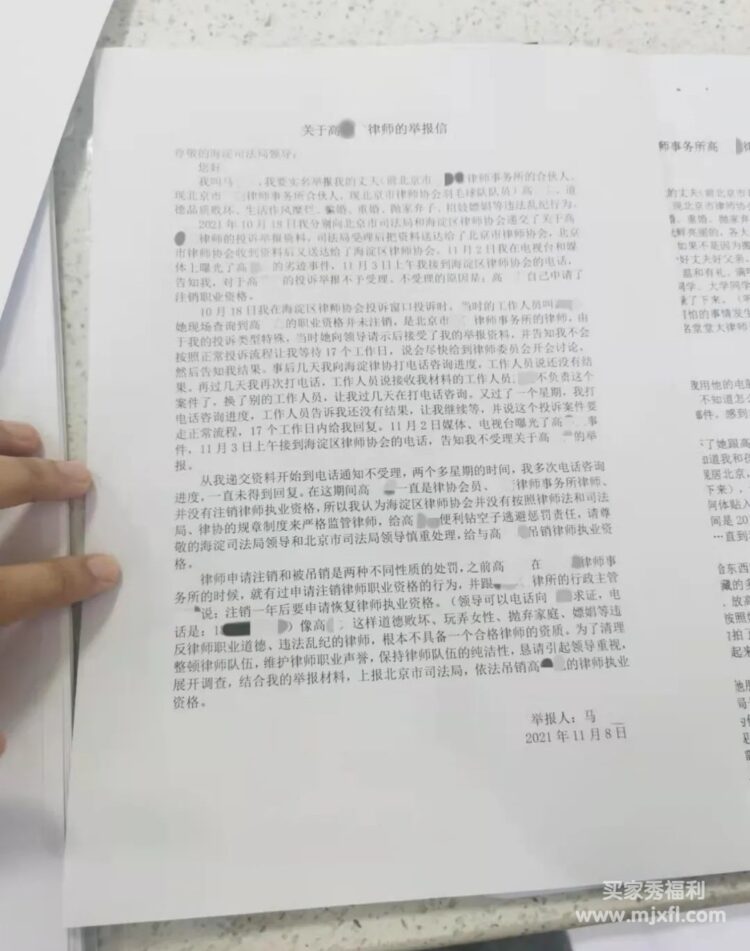 关于高 律师的举报信
尊敬的海淀司法局领导:
您好
我叫马 ,我要实名举报我的丈夫(前北京市 律师事务所的合伙人、
现北京市 律师事务所合伙人、现北京市律师协会羽毛球队队员)高 ,道
德品质败坏、生活作风糜烂、骗婚、重婚、抛家弃子、招妓嫖娼等违法乱纪行为。
2021年10月18日我分别向北京市司法局和海淀区律师协会递交了关于高
律师的投诉举报资料,司法局受理后把资料送达给了北京市律师协会,北京
市律师协会收到资料后又送达给了海淀律师协会。11月2日我在电视台和媒
体上曝光了高 的劣迹事件,11月3日上午我接到海淀区律师协会的电话,
告知我,对于高 的投诉举报不予受理,不受理的原因是:高 自己申请了
注销职业资格。
10月18日我在海淀区律师协会投诉窗口投诉时,当时的工作人员叫
她现场查询到高 的职业资格并未注销,是北京市 律师事务所的律师,由
于我的投诉类型特殊,当时她向领导请示后接受了我的举报资料,并告知我不会
按照正常投诉流程让我等待17个工作日,说会尽快给到律师委员会开会讨论,
然后告知我结果。事后几天我向海淀律协打电话咨询进度,工作人员说还没有结
果。再过几天我再次打电话,工作人员说接收我材料的工作人员 不负责这个
案件了,换了别的工作人员,让我过几天在打电话咨询。又过了一个星期,我打
电话咨询进度,工作人员告诉我还没有结果,让我继续等,并说这个投诉案件要
走正常流程,17个工作日内给我回复。11月2日媒体、电视台曝光了高 事
件,11月3日上午接到海淀区律师协会的电话,告知我不受理关于高 的举
报。
从我递交资料开始到电话通知不受理,两个多星期的时间,我多次电话咨询
进度,一直未得到回复。在这期间高 一直是律协会员、 律师事务所律师、
并没有注销律师执业资格,所以我认为海淀区律师协会并没有按照律师法和司法
局、律协的规章制度来严格监管律师,给高 便利钻空子逃避惩罚责任,请尊
敬的海淀司法局领导和北京市司法局领导慎重处理,给与高 吊销律师执业资
格。
律师申请注销和被吊销是两种不同性质的处罚,之前高 在 律师事
务所的时候,就有过申请注销律师职业资格的行为,并跟 律所的行政主管
说:注销一年后要申请恢复律师执业资格。(领导可以电话向 求证,电
话是:1 )像高 这样道德败坏、玩弄女性、抛弃家庭、嫖娼等违
反律师职业道德、违法乱纪的律师,根本不具备一个合格律师的资质。为了清理
整顿律师队伍,维护律师职业声誉,保持律师队伍的纯洁性,恳请引起领导重视,
展开调查,结合我的举报材料,上报北京市司法局,依法吊销高 的律师执业
资格。
举报人:马
2021年11月8日
师事务所高
的丈夫(前北京市
买家秀福利
www.mjxfl.com